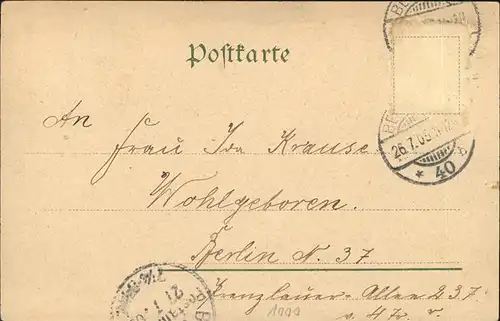 Postkarte
An
Frau Ida Krause
Wohlgeboren.
Berlin N. 37
Prenzlauer-Allee 237
26.7.05
* 40 b
1000